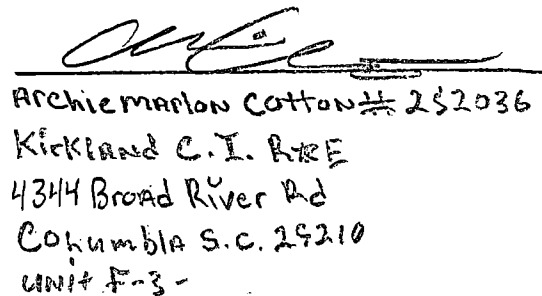 Archie marlon Cotton # 252036
Kirkland C.I. R&E
4344 Broad River Rd
Columbia S.C. 29210
unit F-3-